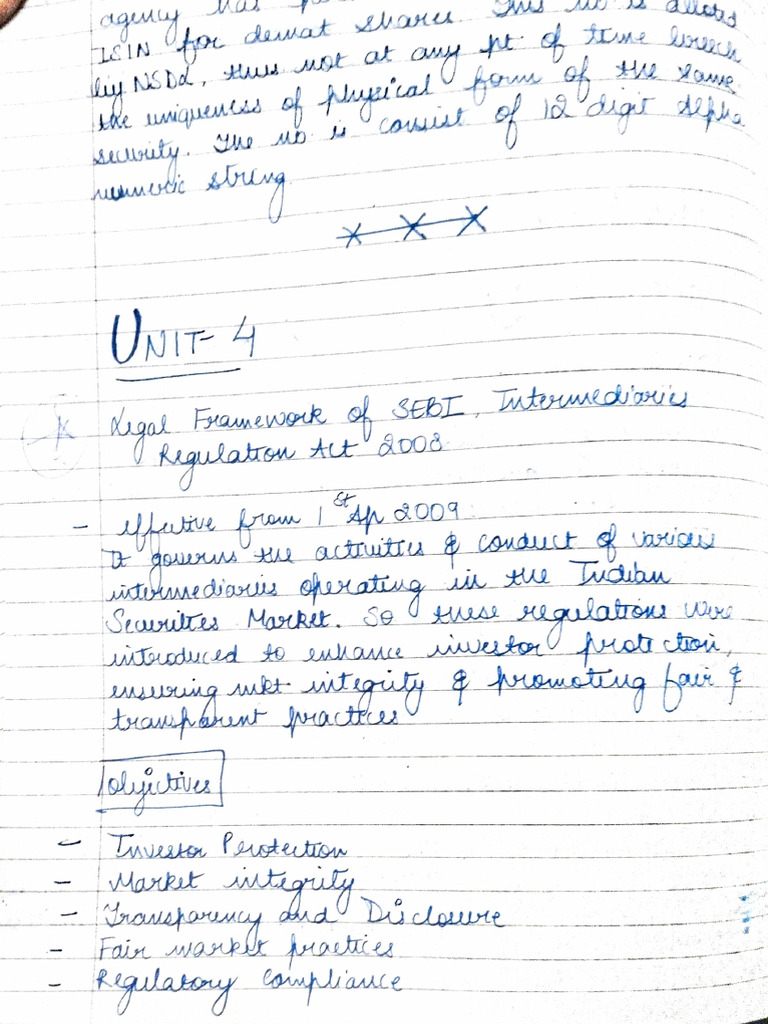 agency has
ISIN for demat shares. This no is alloted
by NSDL, thus not at any pt of time breech
the uniqueness of physical form of the same
security. The no is consist of 12 digit alpha
numeric string
UNIT- 4
Legal Framework of SEBI, Intermediaries
Regulation Act 2008
- effective from 1st Ap 2009
It governs the activities & conduct of various
intermediaries operating in the Indian
Securities Market. So these regulations were
introduced to enhance investor protection,
ensuring mkt integrity & promoting fair &
transparent practices
Objectives
- Investor Protection
- Market integrity
- Transparency and Disclosure
- Fair market practices
- Regulatory compliance